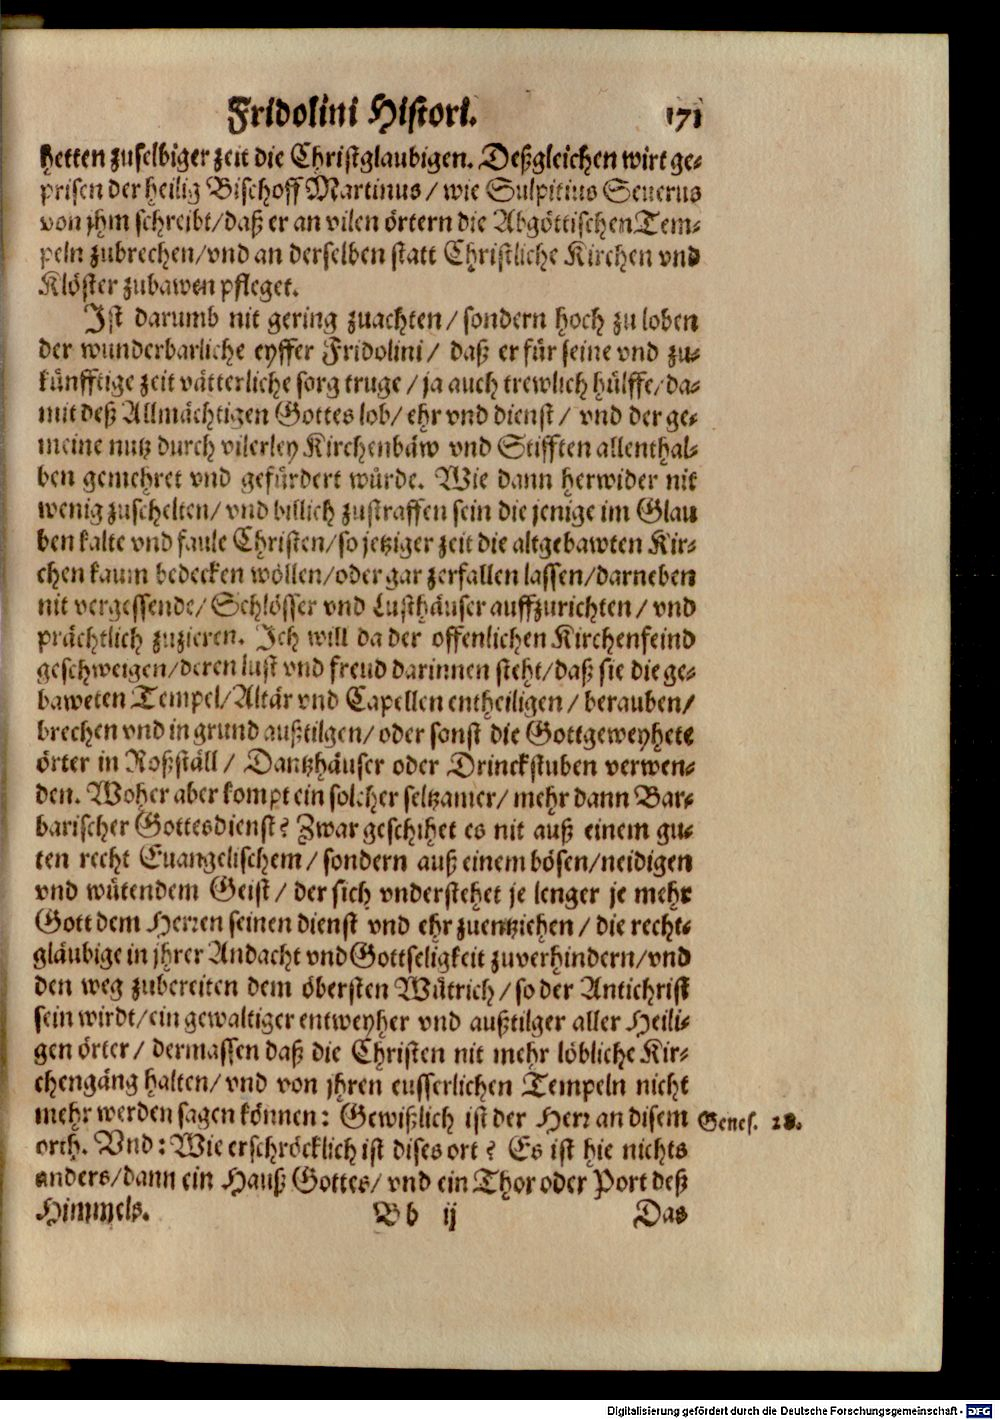 Fridolini Histori. 171
hetten zuselbiger zeit die Christglaubigen. Deßgleichen wirt ge-
prisen der heilig Bischoff Martinus / wie Sulpitius Seuerus
von jhm schreibt / daß er an vilen örtern die Abgöttischen Tem-
peln zubrechen / vnd an derselben statt Christliche Kirchen vnd
Klöster zubawen pfleget.
Ist darumb nit gering zuachten / sondern hoch zu loben
der wunderbarliche eyffer Fridolini / daß er für seine vnd zu-
künfftige zeit vätterliche sorg truge / ja auch trewlich hülffe / da-
mit deß Allmächtigen Gottes lob / ehr vnd dienst / vnd der ge-
meine nutz durch vilerley Kirchenbäw vnd Stifften allenthal-
ben gemehret vnd gefürdert würde. Wie dann herwider nit
wenig zuschelten / vnd billich zustraffen sein die jenige im Glau
ben kalte vnd faule Christen / so jetziger zeit die altgebawten Kir-
chen kaum bedecken wöllen / oder gar zerfallen lassen / darneben
nit vergessende / Schlösser vnd Lusthäuser auffzurichten / vnd
prächtlich zuzieren. Ich will da der offenlichen Kirchenfeind
geschweigen / deren lust vnd freud darinnen steht / daß sie die ge-
baweten Tempel / Altär vnd Capellen entheiligen / berauben /
brechen vnd in grund außtilgen / oder sonst die Gottgeweyhete
örter in Roßställ / Dantzhäuser oder Drinckstuben verwen-
den. Woher aber kompt ein solcher seltzamer / mehr dann Bar-
barischer Gottesdienst? Zwar geschihet es nit auß einem gu-
ten recht Euangelischem / sondern auß einem bösen / neidigen
vnd wütendem Geist / der sich vnderstehet je lenger je mehr
Gott dem Herren seinen dienst vnd ehr zuentziehen / die recht-
gläubige in jhrer Andacht vnd Gottseligkeit zuverhindern / vnd
den weg zubereiten dem öbersten Wütrich / so der Antichrist
sein wirdt / ein gewaltiger entweyher vnd außtilger aller Heili-
gen örter / dermassen daß die Christen nit mehr löbliche Kir-
chengäng halten / vnd von jhren eusserlichen Tempeln nicht
mehr werden sagen können: Gewißlich ist der Herr an disem Genes. 28.
orth. Vnd: Wie erschröcklich ist dises ort? Es ist hie nichts
anders / dann ein Hauß Gottes / vnd ein Thor oder Port deß
Himmels. Bb ij Das
Digitalisierung gefördert durch die Deutsche Forschungsgemeinschaft - DFG